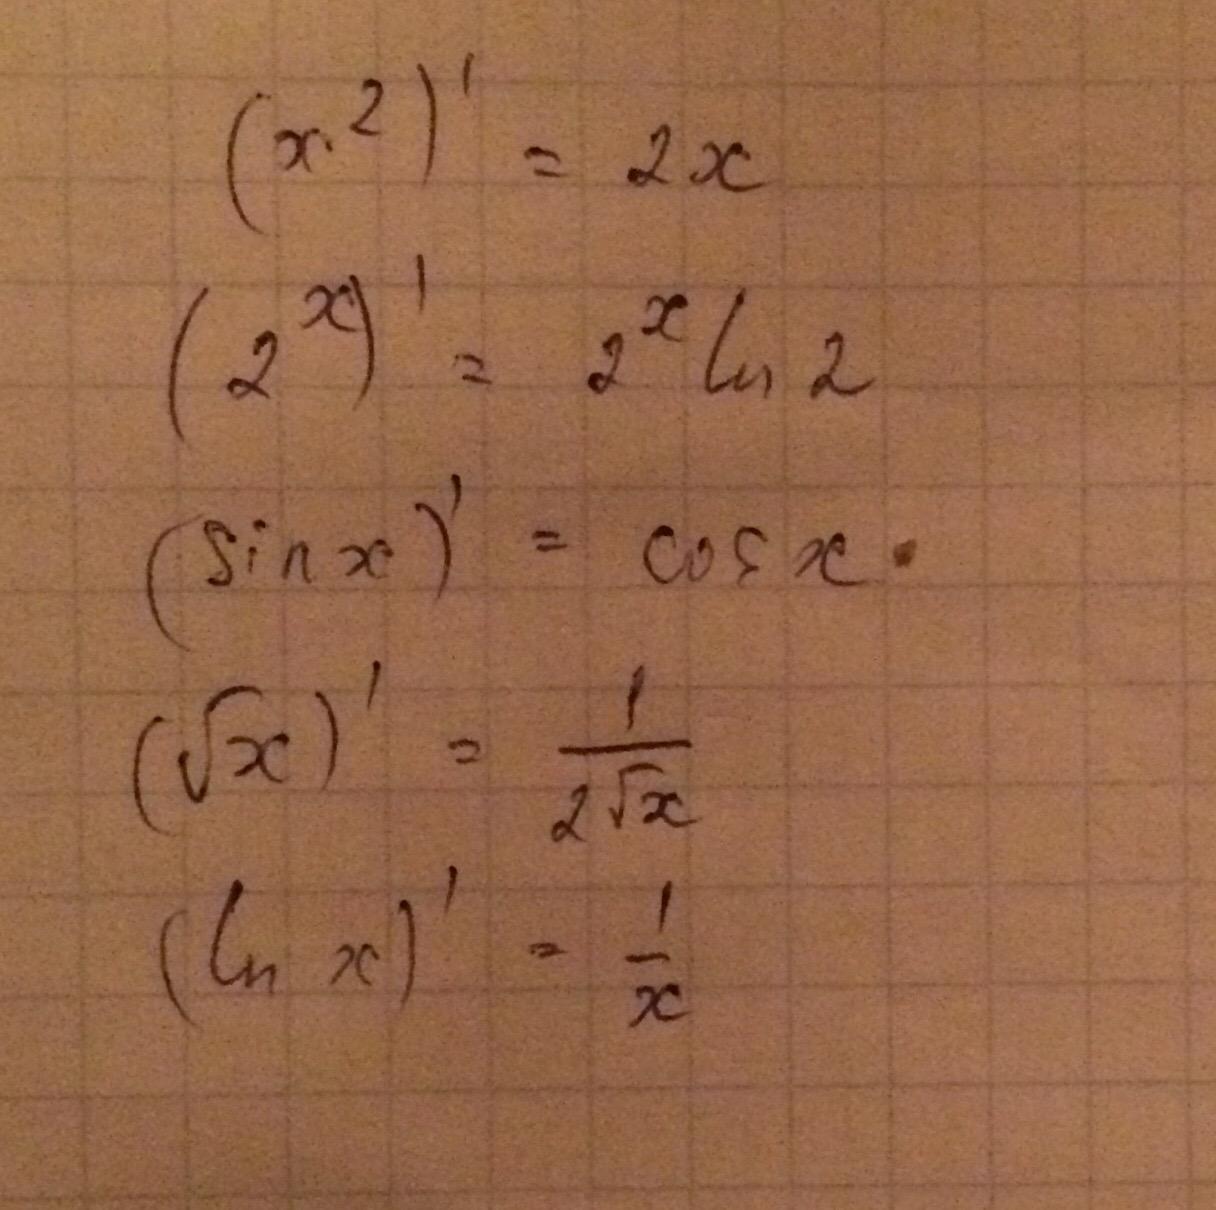 (x²)' = 2x
(2ˣ)' = 2ˣ ln 2
(sin x)' = cos x
(√x)' = 1/(2√x)
(ln x)' = 1/x